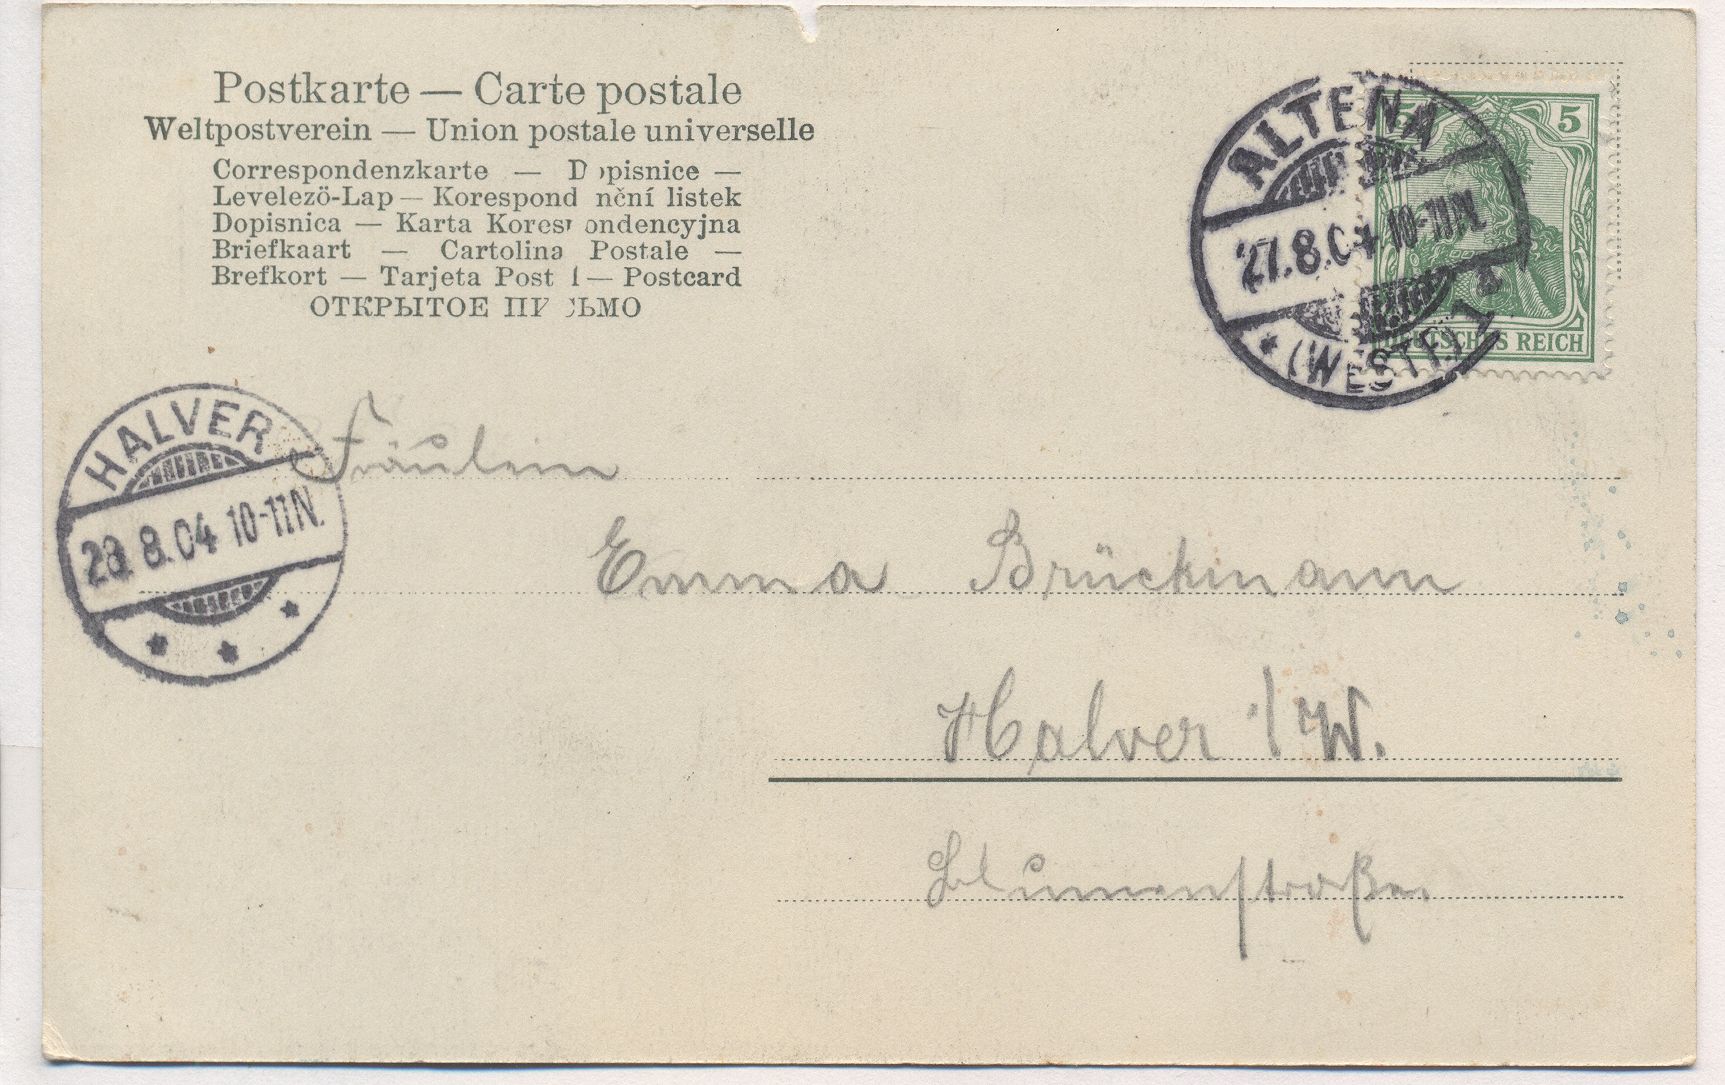 Postkarte — Carte postale
Weltpostverein — Union postale universelle
Correspondenzkarte — Dopisnice —
Levelezö-Lap — Korespond nční listek
Dopisnica — Karta Korespondencyjna
Briefkaart — Cartolina Postale —
Brefkort — Tarjeta Post l — Postcard
ОТКРЫТОЕ ПИСЬМО
5 5
DEUTSCHES REICH
ALTENA
27.8.04 10-11N.
* (WESTF.) 1 *
HALVER
28.8.04 10-11N.
* * *
Fräulein
Emma Brückmann
Halver i/W.
Blumenstraße